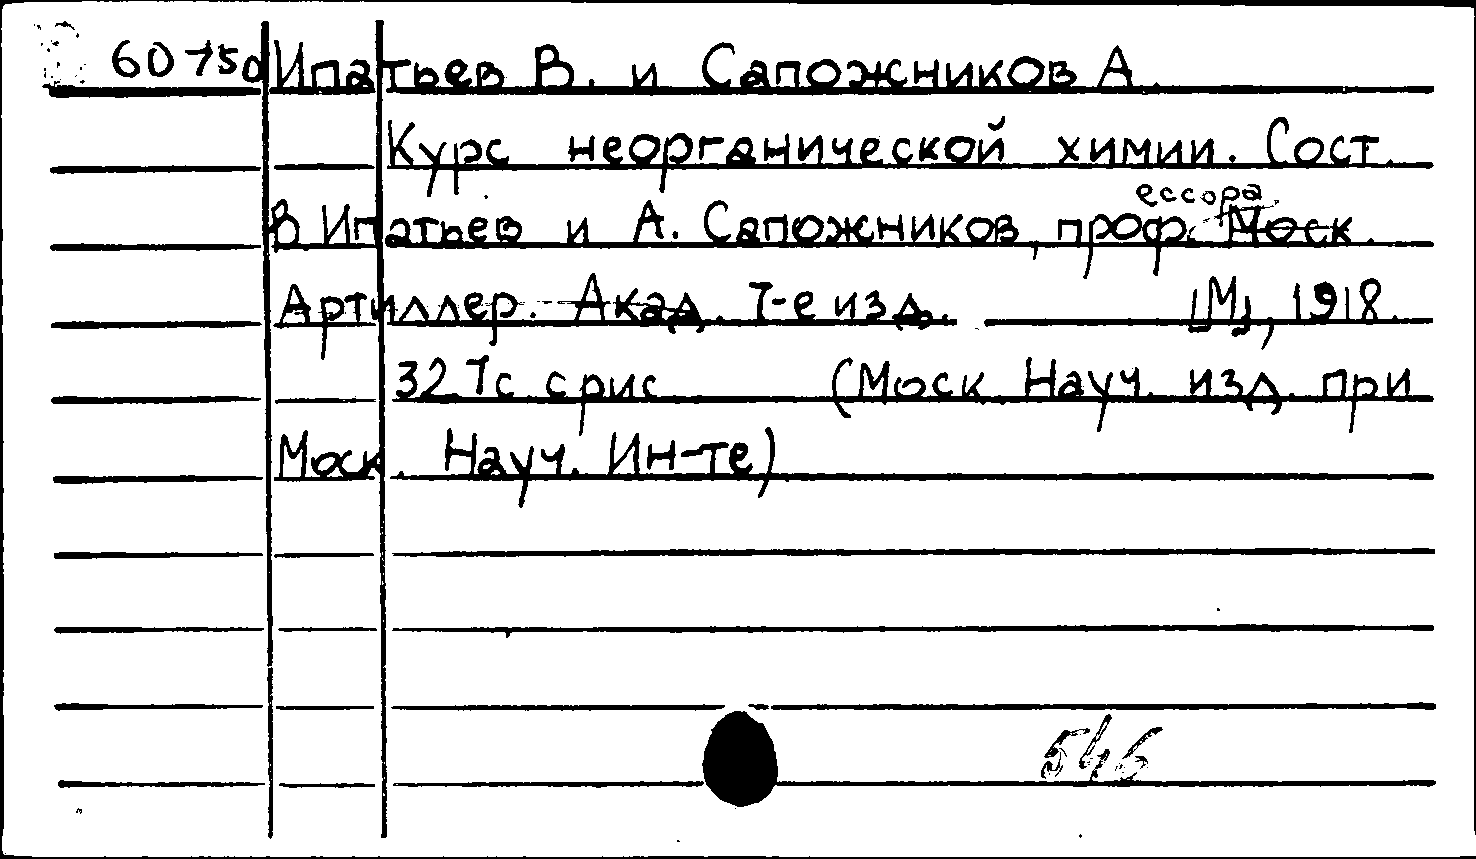 60750 Ипатьев В. и Сапожников А.
Курс неорганической химии. Сост.
В Ипатьев и А. Сапожников, проф. Моск.
ессора
Артиллер. Акад. 7-е изд. [М], 1918.
327с. с рис. (Моск. Науч. изд. при
Моск. Науч. Ин-те)
546